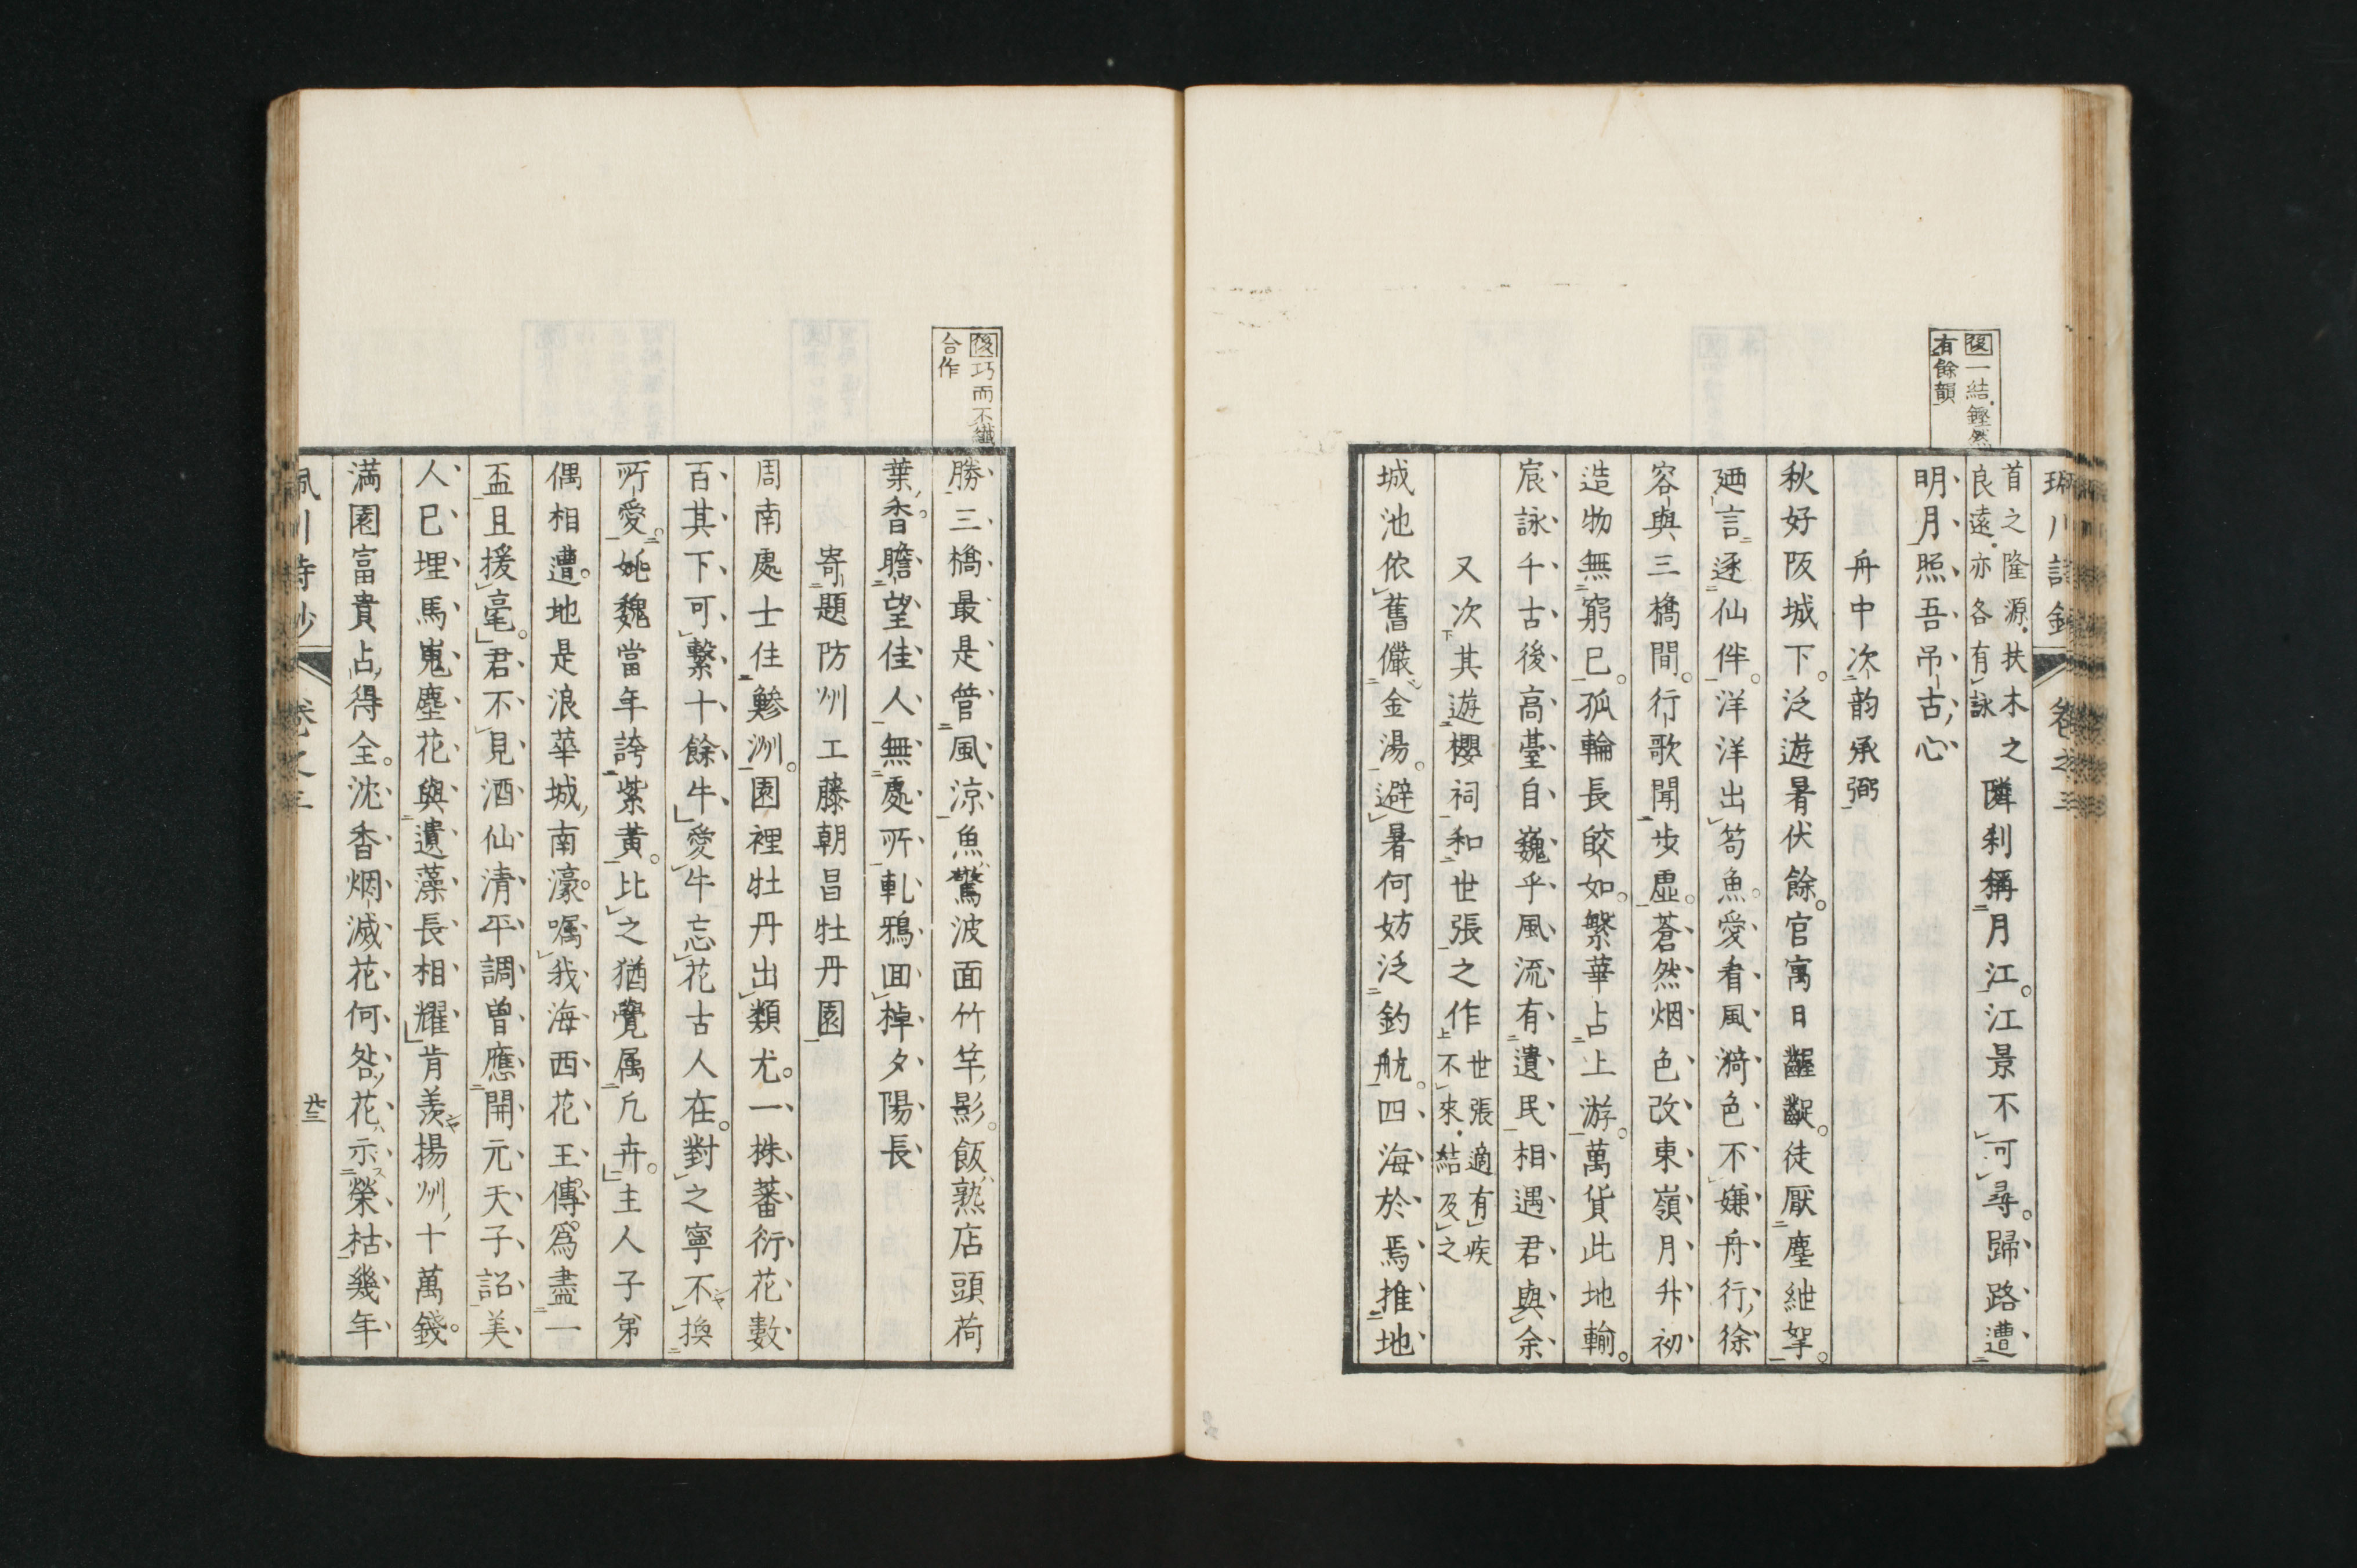 後一結鏗然
有餘韻
首之隆源扶木之
良遠亦各有詠
隣刹稱月江江景不可尋歸路遭
明月照吾吊古心
舟中次韵承弼
秋好阪城下泛遊暑伏餘官寓日齷齪徒厭塵紲挐
廼言逐仙伴洋洋出笱魚愛看風漪色不嫌舟行徐
容與三橋間行歌聞步虛蒼然烟色改東嶺月升初
造物無窮巳孤輪長皎如繁華占上游萬貨此地輸
宸詠千古後高臺自巍乎風流有遺民相遇君與余
又次其遊櫻祠和世張之作
世張適有疾
不來結及之
城池依舊儼金湯避暑何妨泛釣航四海於焉推地
後巧而不纖
合作
勝三橋最是管風涼魚驚波面竹竿影飯熟店頭荷
葉香瞻望佳人無處所軋鴉回棹夕陽長
寄題防州工藤朝昌牡丹園
周南處士住鯵洲園裡牡丹出類尤一株蕃衍花數
百其下可繫十餘牛愛牛忘花古人在對之寧不換
所愛姚魏當年誇紫黃比之猶覺属凢卉主人子弟
偶相遭地是浪華城南濠嘱我海西花王傳爲盡一
盃且援毫君不見酒仙清平調曽應開元天子詔美
人巳埋馬嵬塵花與遺藻長相耀肯羨揚州十萬錢
満園富貴占得全沈香烟滅花何咎花示榮枯幾年
卷之三
廿三